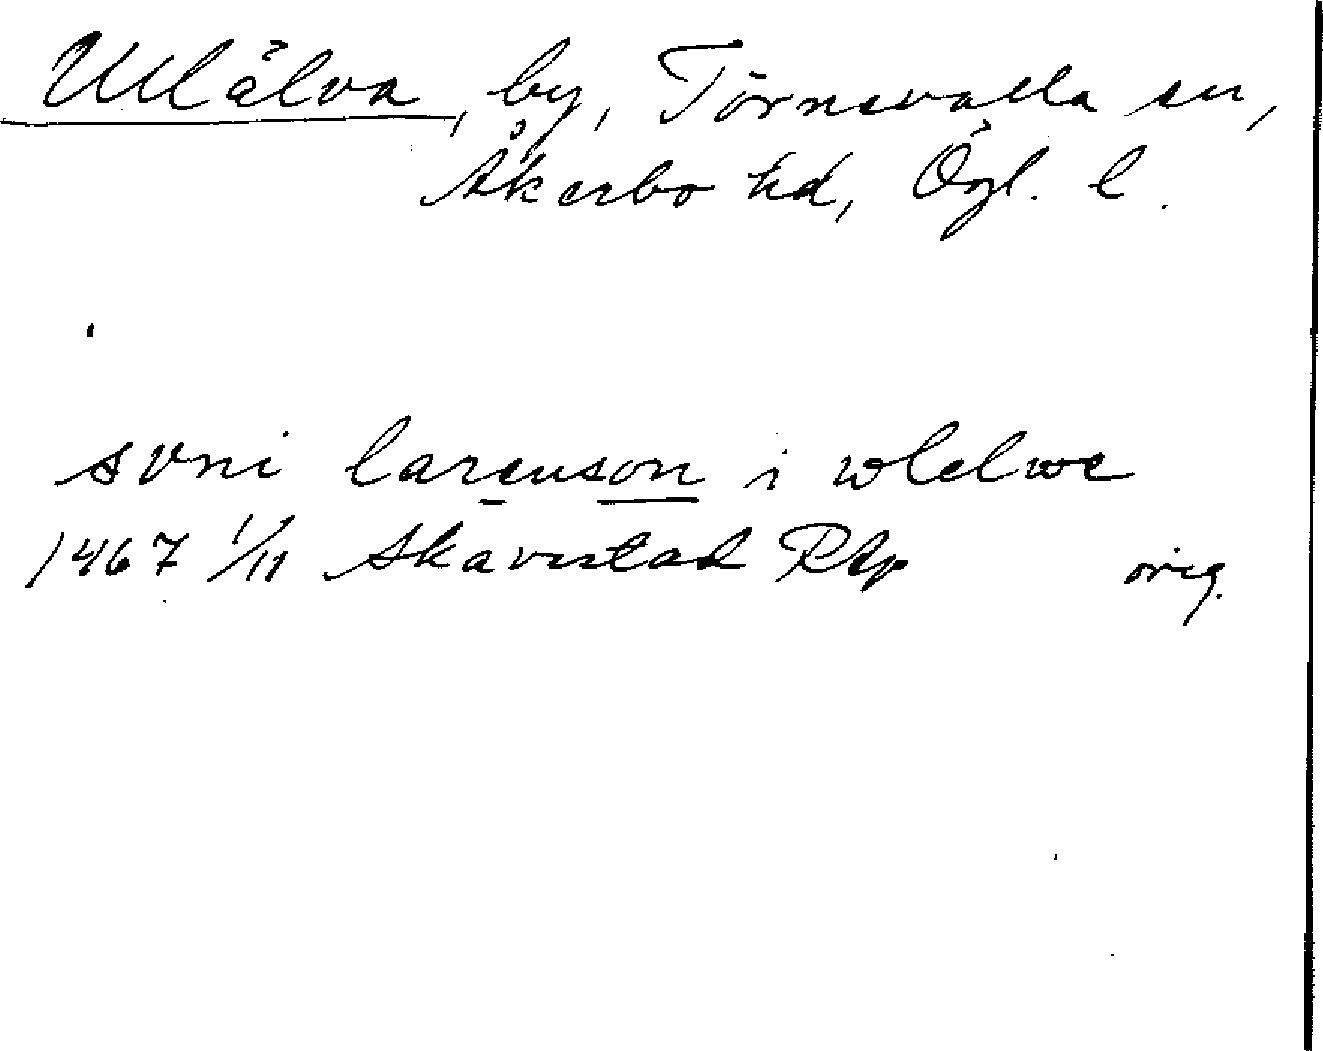 Ullälva, by, Törnevalla sn,
Åkerbo hd, Ögl. l.
svni larenson i wlelwe
1467 1/11 Skavestad Rep orig.